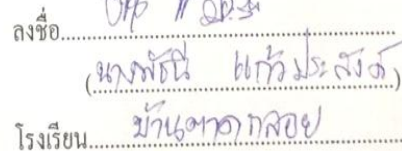 ลงชื่อ
(นางพัชนี แก้วประสังค์)
โรงเรียน บ้านตาดกลอย